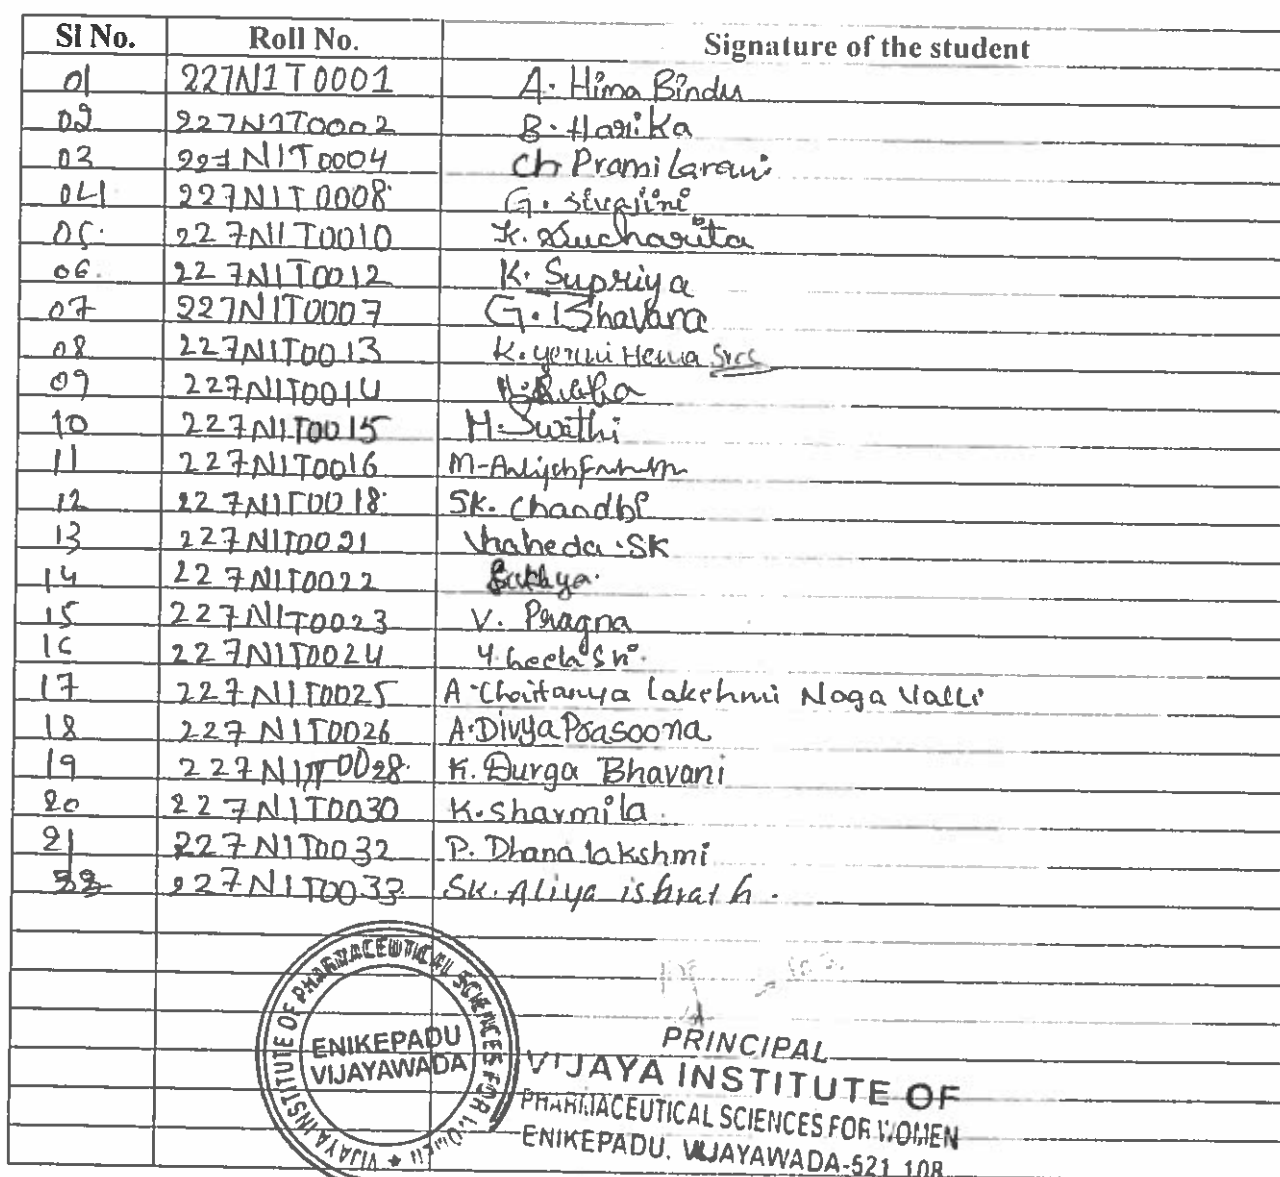 Sl No. Roll No. Signature of the student
01 227N1T0001 A. Hima Bindu
02 227N1T0002 B. Harika
03 227N1T0004 Ch Pramilarani
04 227N1T0008 G. Sivajini
05. 227N1T0010 K. Sucharita
06. 227N1T0012 K. Supriya
07 227N1T0007 G. Bhavana
08 227N1T0013 K. Yerni Hema Sree
09 227N1T0014
10 227N1T0015 M. Swathi
11 227N1T0016
12 227N1T0018 SK. Chandbi
13 227N1T0021 Vhaheda .SK
14 227N1T0022
15 227N1T0023 V. Pragna
16 227N1T0024 Y. Geeta Sri.
17 227N1T0025 A. Chaitanya Lakshmi Naga Valli
18 227N1T0026 A. Divya Prasoona
19 227N1T0028 K. Durga Bhavani
20 227N1T0030 K. Sharmila.
21 227N1T0032 P. Dhana lakshmi
227N1T0033 SK. Aliya ishrath.
VIJAYA INSTITUTE OF PHARMACEUTICAL SCIENCES FOR WOMEN
ENIKEPADU
VIJAYAWADA
PRINCIPAL
VIJAYA INSTITUTE OF
PHARMACEUTICAL SCIENCES FOR WOMEN
ENIKEPADU, VIJAYAWADA-521 108